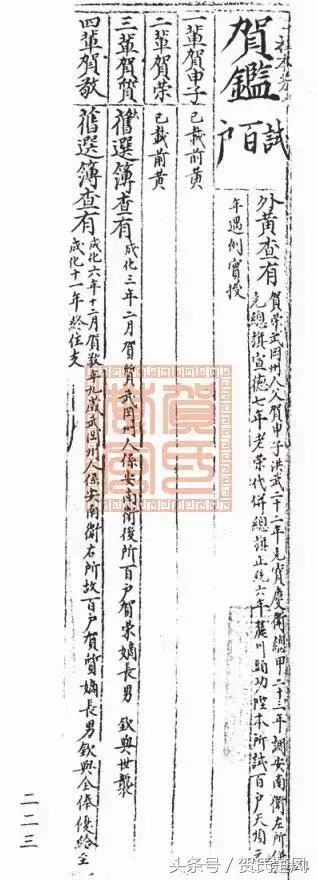 賀鑑 試百户
外黃查有
賀榮武岡州人父賀申子洪武二十一年充寶慶衛總甲二十三年調安南衛左所併
充總旗宣德七年老榮代併總旗正統六年麓川頭功陞本所試百户天順三
年遇例實授
一輩賀申子 已載前黃
二輩賀榮 已載前黃
三輩賀質 舊選簿查有 成化三年二月賀質武岡州人係安南衛後所百户賀榮嫡長男 欽與世襲
四輩賀敬 舊選簿查有 成化六年十二月賀敬年九歲武岡州人係安南衛右所故百户賀質嫡長男欽與全俸優給至
成化十一年終住支
二二三
头条号